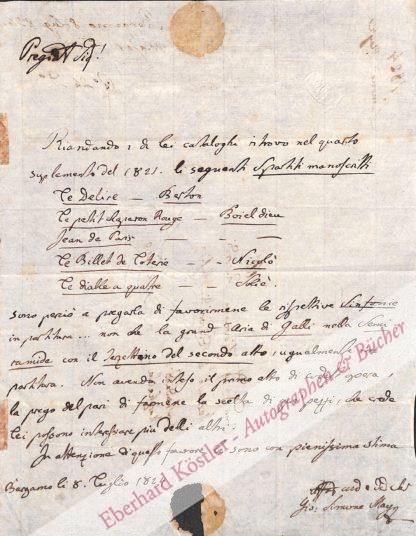 Pregiat Sig!
Riandando i di lei cataloghi ritrovo nel quarto
suplemento del 1821. li seguenti Spartiti manoscritti
Le Delire — Berton
Le petit Chaperon Rouge — Boieldieu
Jean de Paris — — —
Le Billet de Loterie — — Nicolò
Le diable a quatre — Soliè
sono perciò a pregarla di favorirmene le rispettive Sinfonie
in partitura... non che la grand Aria di Galli nella Semi
ramide con il Terzettono del secondo atto, ugualmente in
partitura. Non avendo inteso il primo atto di opera
la prego del pari di la scelta di pezzi, che crede
Lei possono intressare più delli altri.
In attenzione di questo favore sono con pienissima stima
Bergamo li 8. Luglio 182
Gio: Simone Mayr
Eberhard Köstler - Autographen & Bücher